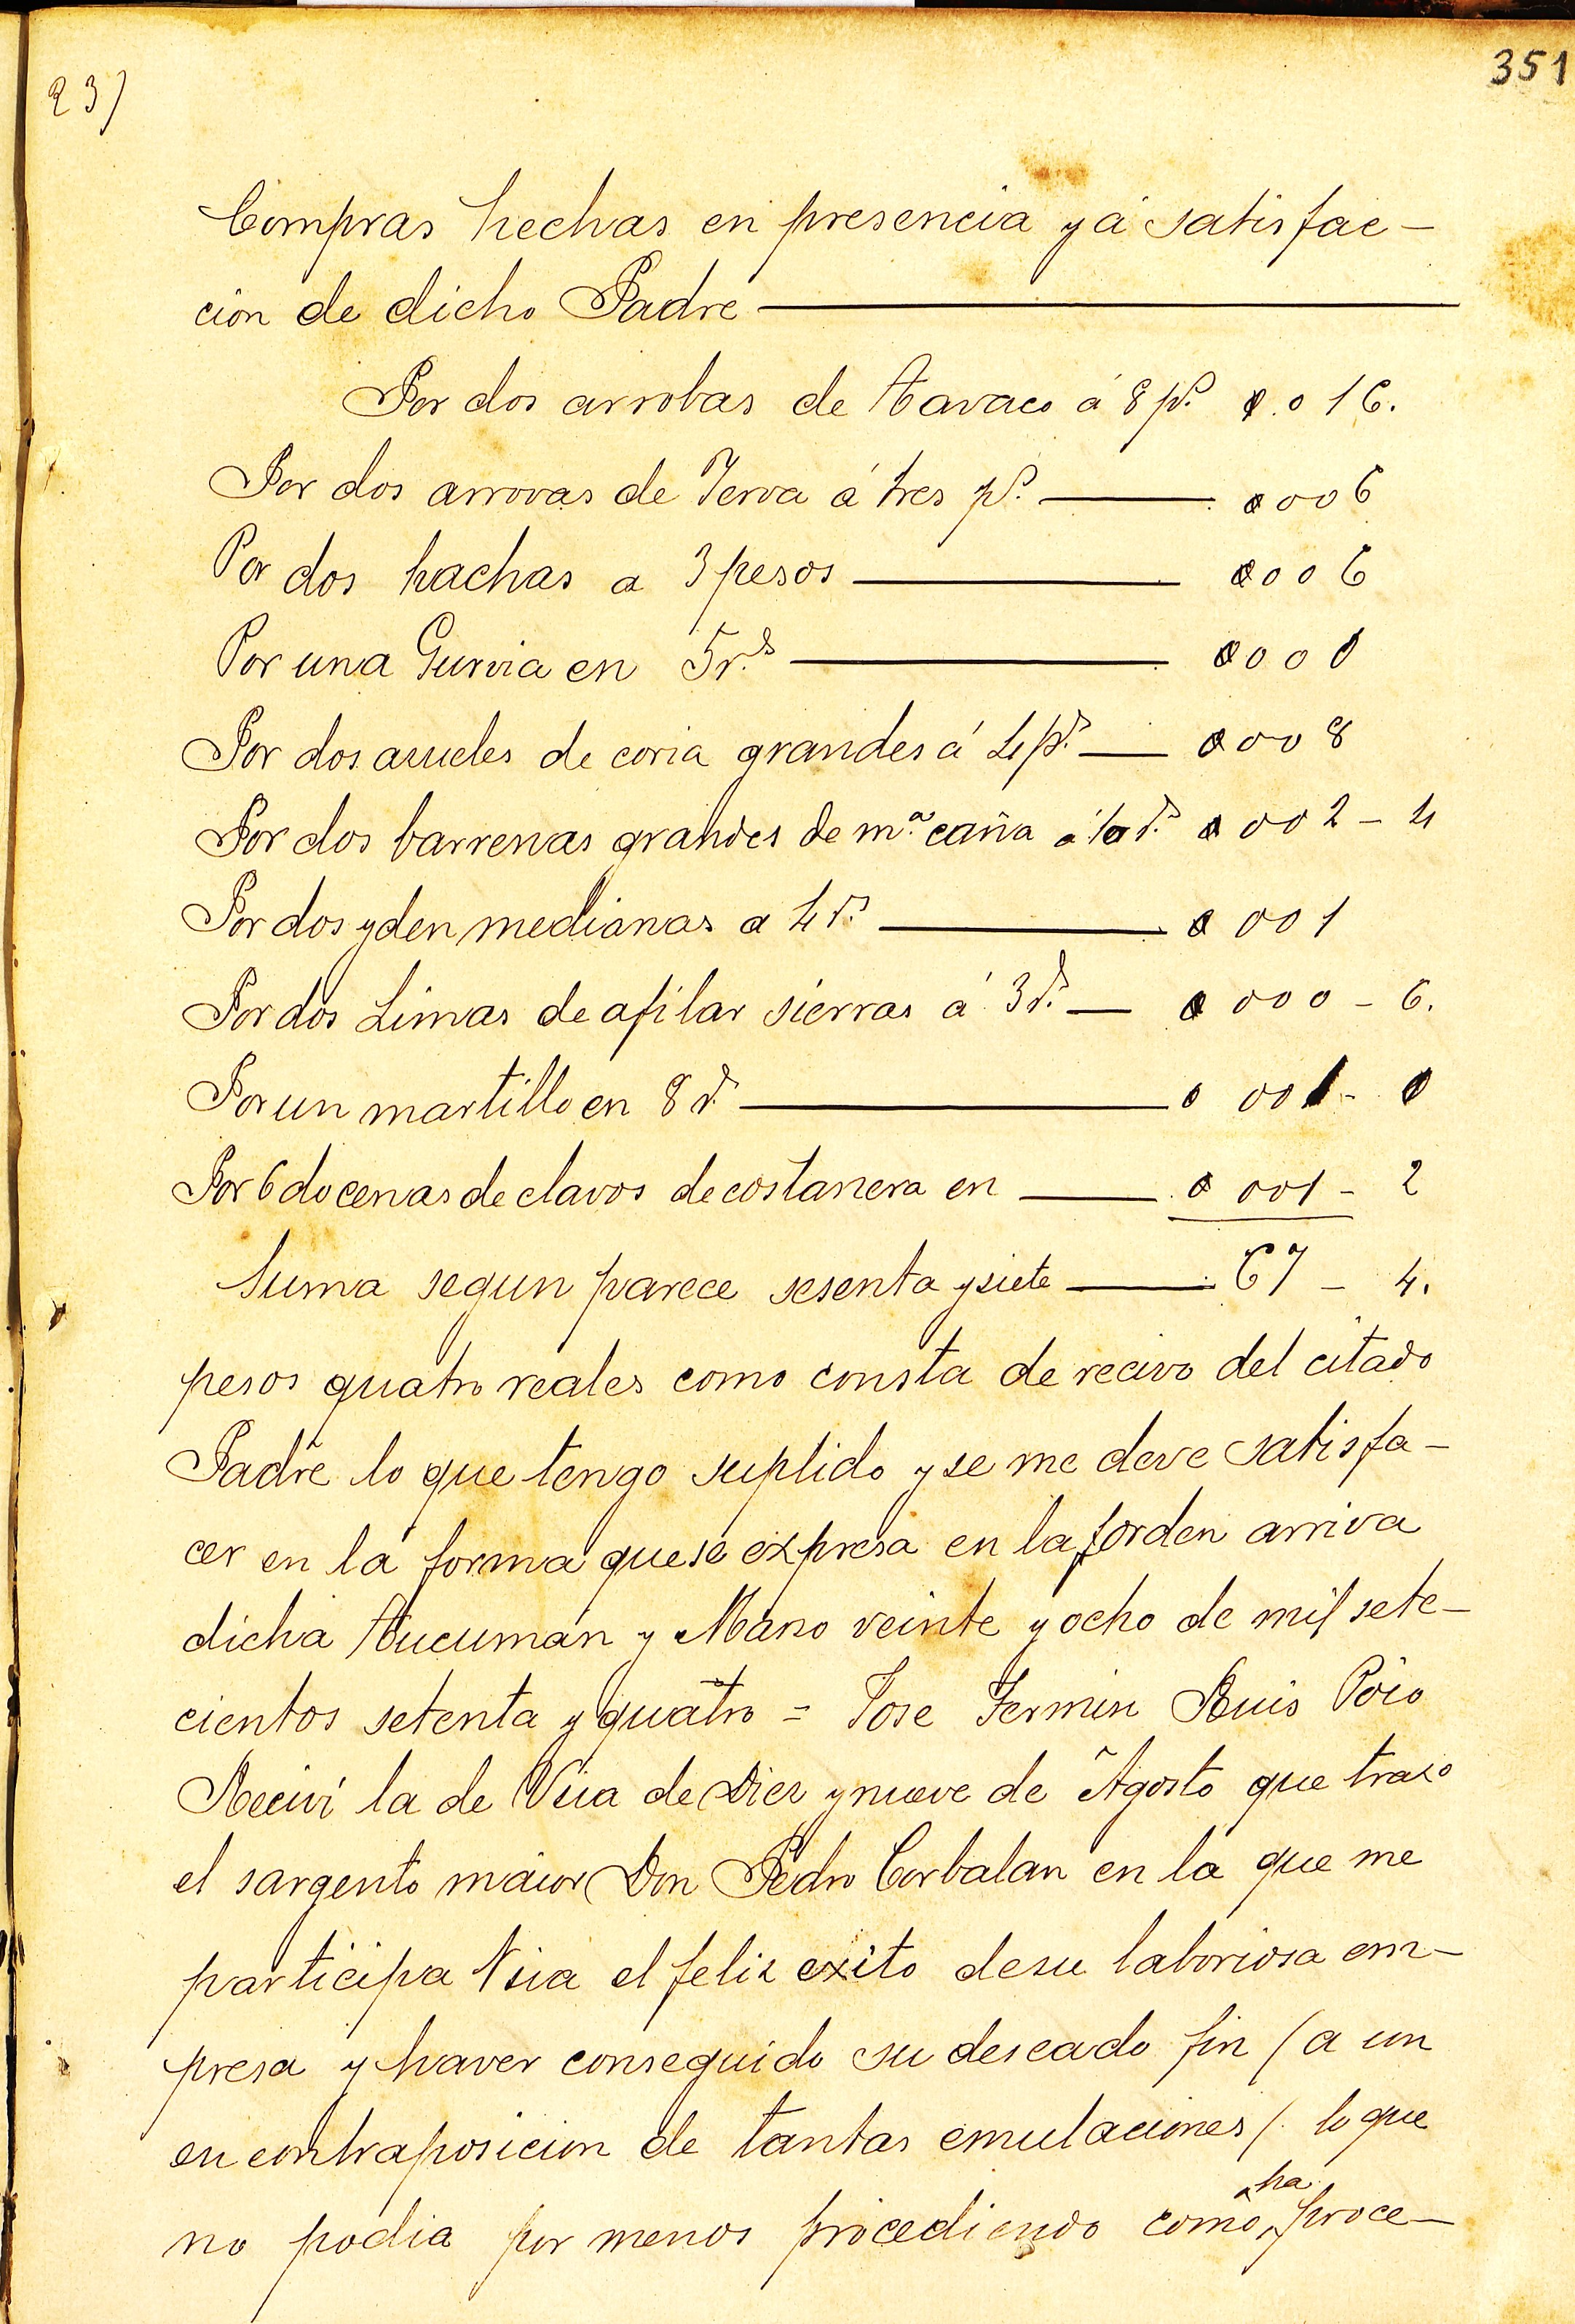 351
23)
Compras hechas en presencia y á satisfac-
cion de dicho Padre
Por dos arrobas de Tavaco á 8 p.s 0.016.
Por dos arrovas de Yerva á tres p.s 0006
Por dos hachas a 3 pesos 0006
Por una Gurvia en 5 r.s 0000
Por dos de coria grandes á 4 p.s 0008
Por dos barrenas grandes de m.a caña á 10 r.s 0002 - 4
Por dos yden medianas a 4 r.s 0001
Por dos Limas de afilar sierras á 3 r.s 0000 - 6.
Por un martillo en 8 r.s 0001 - 0
Por 6 docenas de clavos de costanera en 0001 - 2
Suma segun parece sesenta y siete 67 - 4.
pesos quatro reales como consta de recivo del citado
Padre lo que tengo suplido y se me deve satisfa-
cer en la forma que se expresa en la orden arriva
dicha Tucuman y Marso veinte y ocho de mil sete-
cientos setenta y quatro = Jose Fermin Ruis Poio
Recivi la de Vsia de Diez y nueve de Agosto que traxo
el sargento maior Don Pedro Corbalan en la que me
participa Vsia el feliz exito de su laboriosa em-
presa y haver conseguido su deseado fin (a un
en contraposicion de tantas emulaciones/. lo que
no podia por menos procediendo como ha proce-